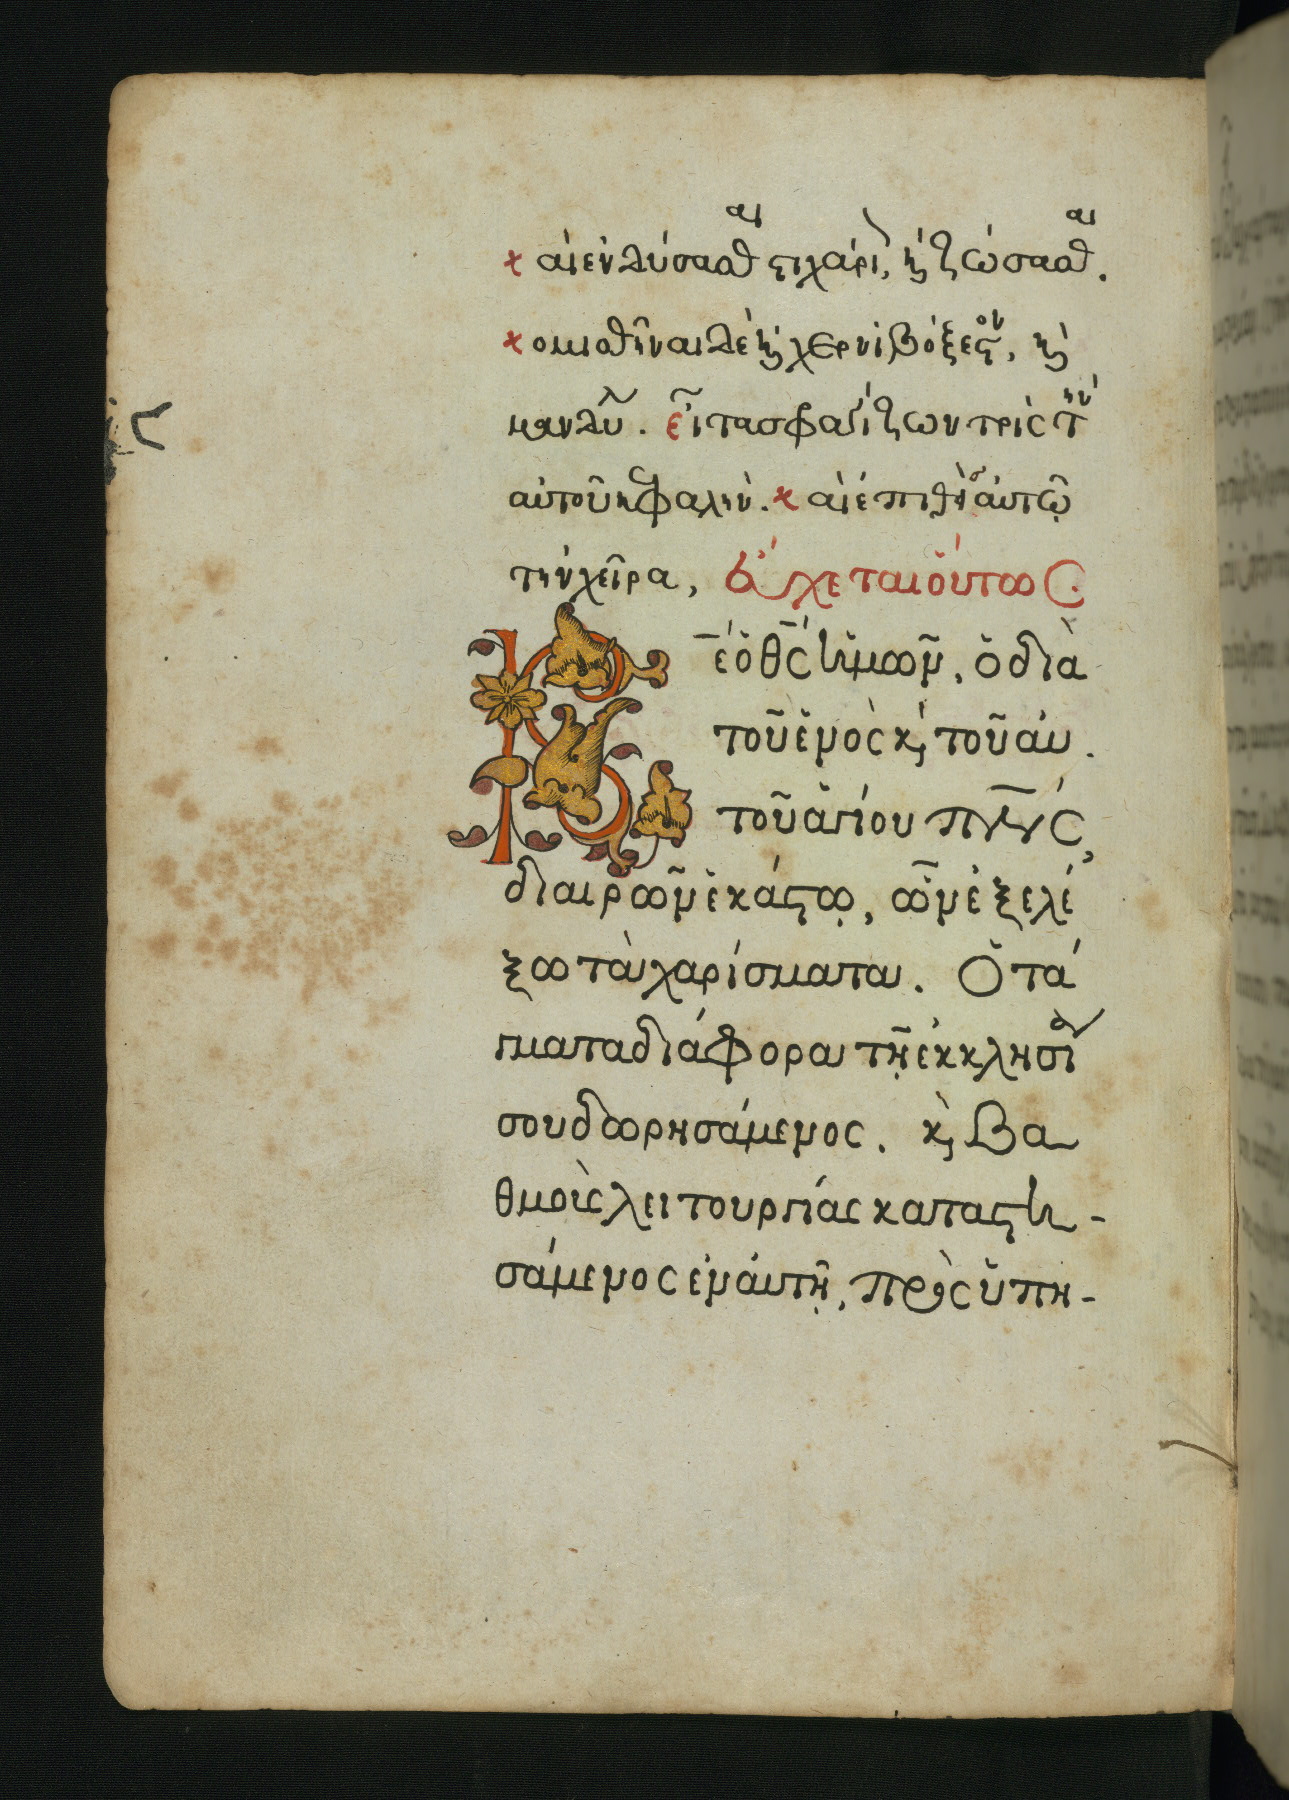 καὶ ἐνδύσασθαι στιχάρι, κ ζώσασθαι.
κομισθῆναι δὲ κ χερνιβόξεστον, κ
μανδύ. εἶτα σφραγίζων τρὶς τὴν
αὐτοῦ κεφαλήν. καὶ ἐπιθεὶς αὐτῷ
τὴν χεῖρα, εὔχεται οὕτως.
Κ̅ε̅ ὁ θ̅ς̅ ἡμῶν, ὁ διὰ
τοῦ ἑνὸς κ τοῦ αὐ.
τοῦ ἁγίου π̅ν̅ς̅,
διαιρῶν ἑκάστῳ, ὧν ἐξελέ
ξω τὰ χαρίσματα. Ὁ τά
γματα διάφορα τῇ ἐκκλησίᾳ
σου δωρησάμενος. κ Βα
θμοὺς λειτουργίας καταστη-
σάμενος ἐν αὐτῇ, πρὸς ὑπη-